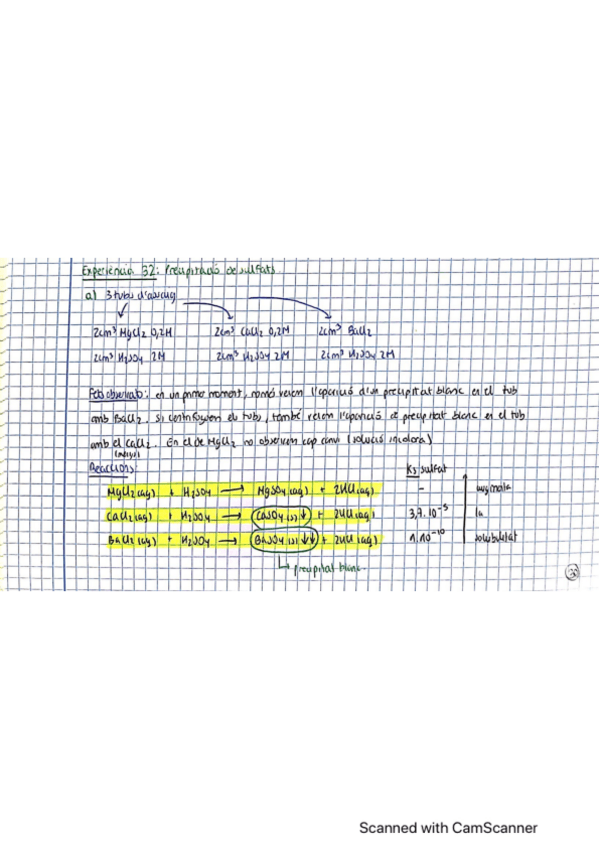 Experiència 32: Precipitació de sulfats.
a) 3 tubs d'assaig
2cm³ MgCl2 0,2M 2cm³ CaCl2 0,2M 2cm³ BaCl2
2cm³ H2SO4 2M 2cm³ H2SO4 2M 2cm³ H2SO4 2M
Fets observats: en un primer moment, només veiem l'aparició d'un precipitat blanc en el tub
amb BaCl2. Si centrifuguem els tubs, també veiem l'aparició de precipitat blanc en el tub
amb el CaCl2. En el de MgCl2 no observem cap canvi (solució incolora)
Reaccions Ks sulfat
MgCl2 (aq) + H2SO4 → MgSO4 (aq) + 2HCl (aq) - augmenta
CaCl2 (aq) + H2SO4 → CaSO4 (s) ↓ + 2HCl (aq) 3,7·10⁻⁵ la
BaCl2 (aq) + H2SO4 → BaSO4 (s) ↓↓ + 2HCl (aq) 1·10⁻¹⁰ solubilitat
↳ precipitat blanc
Scanned with CamScanner